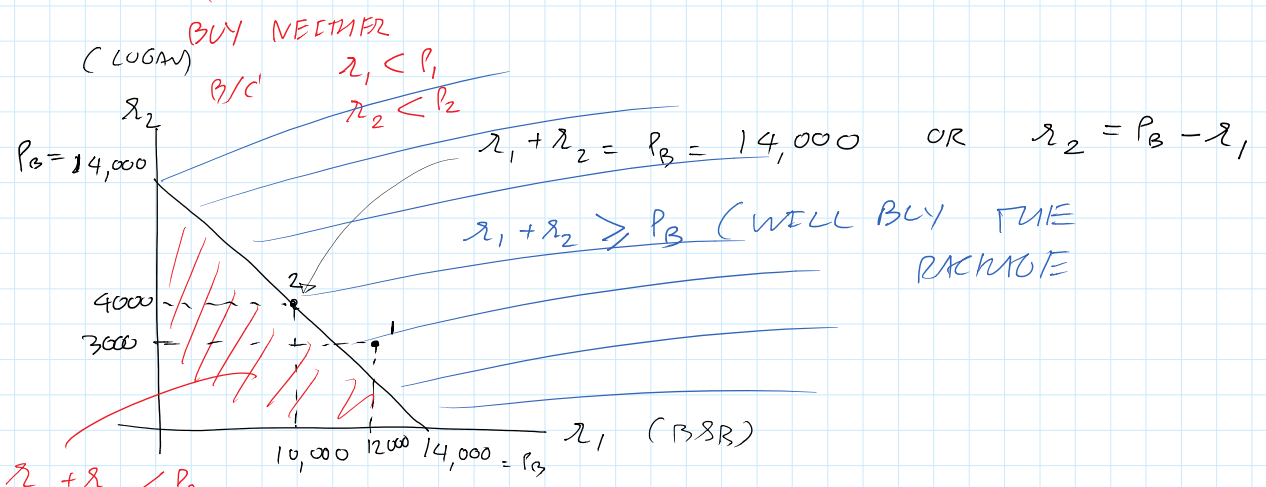 BUY NEITHER
(LOGAN)
B/C
r₁ < P₁
r₂ < P₂
r₂
P_B = 14,000
r₁ + r₂ = P_B = 14,000 OR r₂ = P_B - r₁
r₁ + r₂ ≥ P_B (WILL BUY THE
PACKAGE
2
4000
1
3000
10,000
12000
14,000 = P_B
r₁ (B&B)